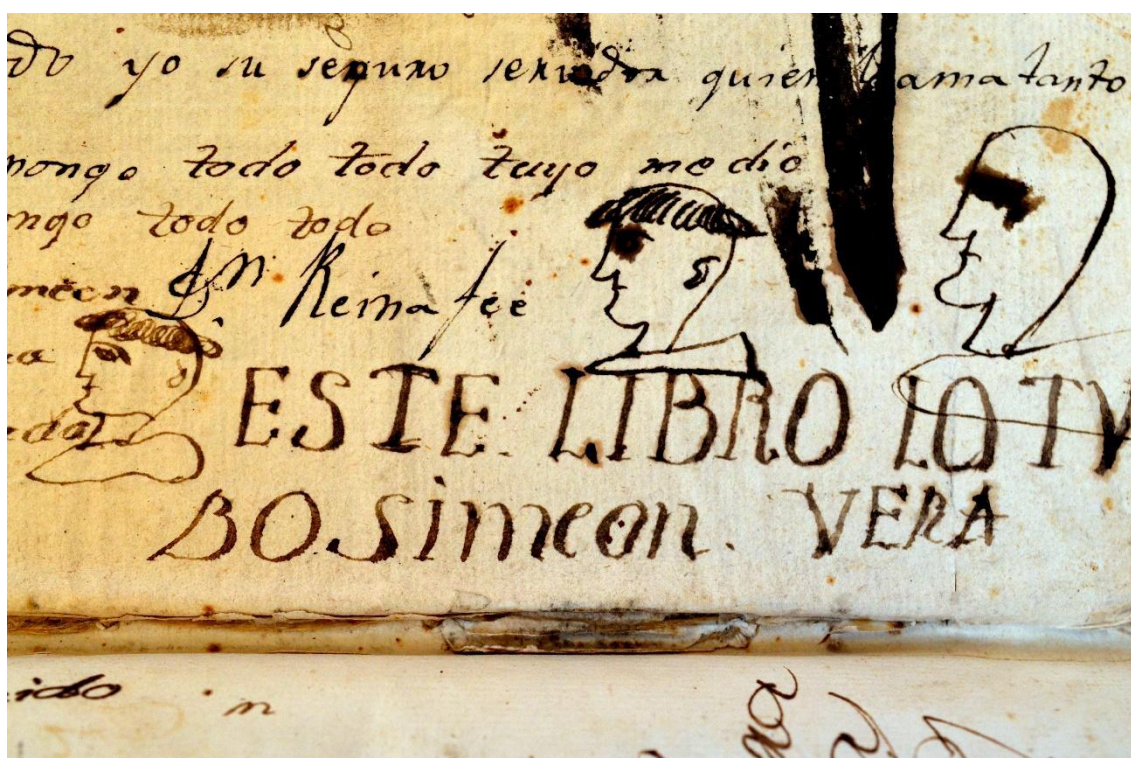 yo su seguro servidor quien ama tanto
pongo todo todo tuyo medio
ongo todo todo
meon Jn Reinafee
ESTE LIBRO LO TV
BO simeon. VERA
ido